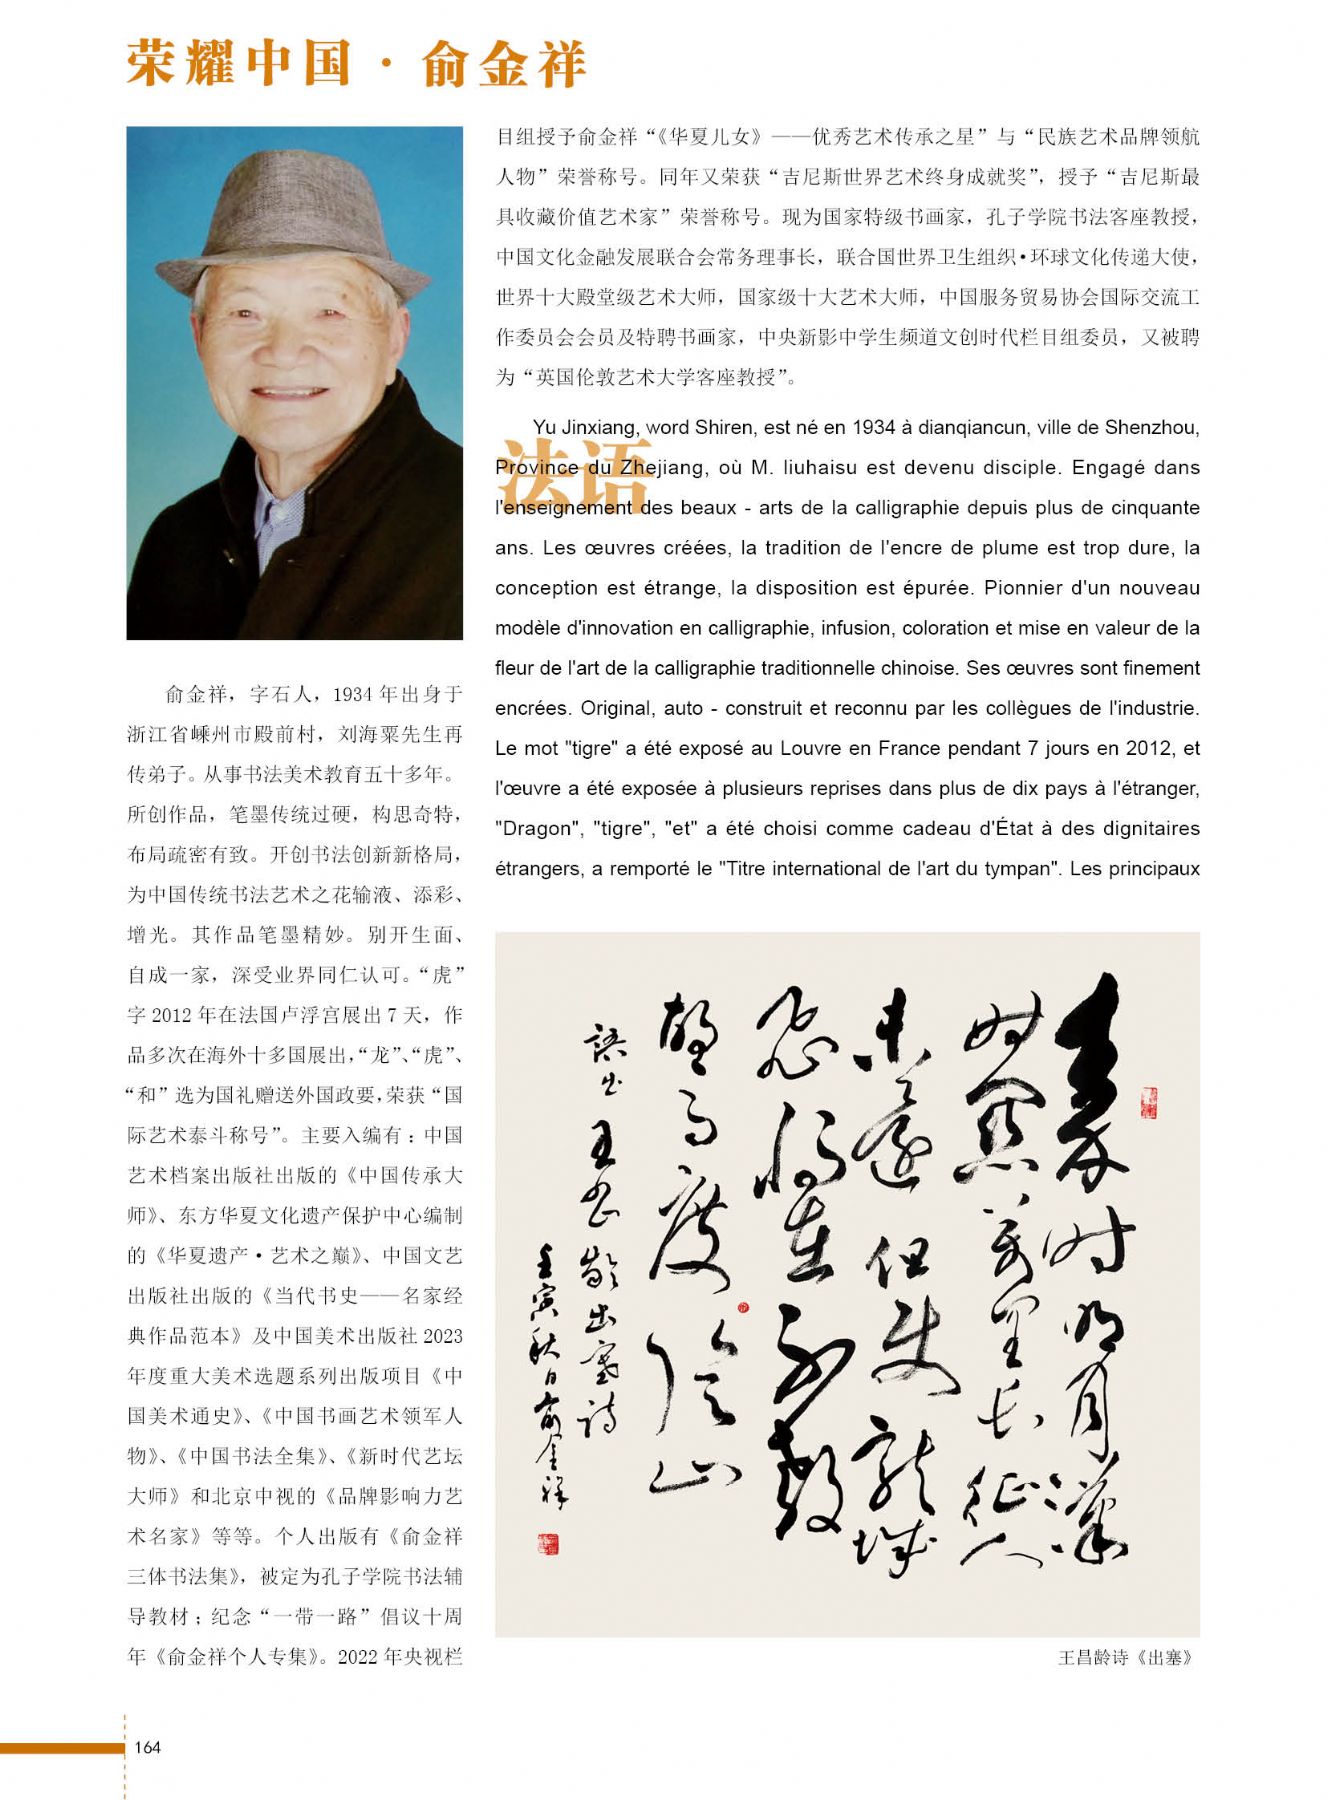 荣耀中国·俞金祥
俞金祥，字石人，1934 年出身于
浙江省嵊州市殿前村，刘海粟先生再
传弟子。从事书法美术教育五十多年。
所创作品，笔墨传统过硬，构思奇特，
布局疏密有致。开创书法创新新格局，
为中国传统书法艺术之花输液、添彩、
增光。其作品笔墨精妙。别开生面、
自成一家，深受业界同仁认可。“虎”
字 2012 年在法国卢浮宫展出 7 天，作
品多次在海外十多国展出，“龙”、“虎”、
“和”选为国礼赠送外国政要，荣获“国
际艺术泰斗称号”。主要入编有：中国
艺术档案出版社出版的《中国传承大
师》、东方华夏文化遗产保护中心编制
的《华夏遗产·艺术之巅》、中国文艺
出版社出版的《当代书史——名家经
典作品范本》及中国美术出版社 2023
年度重大美术选题系列出版项目《中
国美术通史》、《中国书画艺术领军人
物》、《中国书法全集》、《新时代艺坛
大师》和北京中视的《品牌影响力艺
术名家》等等。个人出版有《俞金祥
三体书法集》，被定为孔子学院书法辅
导教材；纪念“一带一路”倡议十周
年《俞金祥个人专集》。2022 年央视栏
目组授予俞金祥“《华夏儿女》——优秀艺术传承之星”与“民族艺术品牌领航
人物”荣誉称号。同年又荣获“吉尼斯世界艺术终身成就奖”，授予“吉尼斯最
具收藏价值艺术家”荣誉称号。现为国家特级书画家，孔子学院书法客座教授，
中国文化金融发展联合会常务理事长，联合国世界卫生组织·环球文化传递大使，
世界十大殿堂级艺术大师，国家级十大艺术大师，中国服务贸易协会国际交流工
作委员会会员及特聘书画家，中央新影中学生频道文创时代栏目组委员，又被聘
为“英国伦敦艺术大学客座教授”。
法语
Yu Jinxiang, word Shiren, est né en 1934 à dianqiancun, ville de Shenzhou,
Province du Zhejiang, où M. liuhaisu est devenu disciple. Engagé dans
l'enseignement des beaux - arts de la calligraphie depuis plus de cinquante
ans. Les œuvres créées, la tradition de l'encre de plume est trop dure, la
conception est étrange, la disposition est épurée. Pionnier d'un nouveau
modèle d'innovation en calligraphie, infusion, coloration et mise en valeur de la
fleur de l'art de la calligraphie traditionnelle chinoise. Ses œuvres sont finement
encrées. Original, auto - construit et reconnu par les collègues de l'industrie.
Le mot "tigre" a été exposé au Louvre en France pendant 7 jours en 2012, et
l'œuvre a été exposée à plusieurs reprises dans plus de dix pays à l'étranger,
"Dragon", "tigre", "et" a été choisi comme cadeau d'État à des dignitaires
étrangers, a remporté le "Titre international de l'art du tympan". Les principaux
秦时明月汉
时关万里长征人
未还但使龙城
飞将在不教
胡马度阴山
語出王昌龄出塞诗
壬寅秋日俞金祥
王昌龄诗《出塞》
164